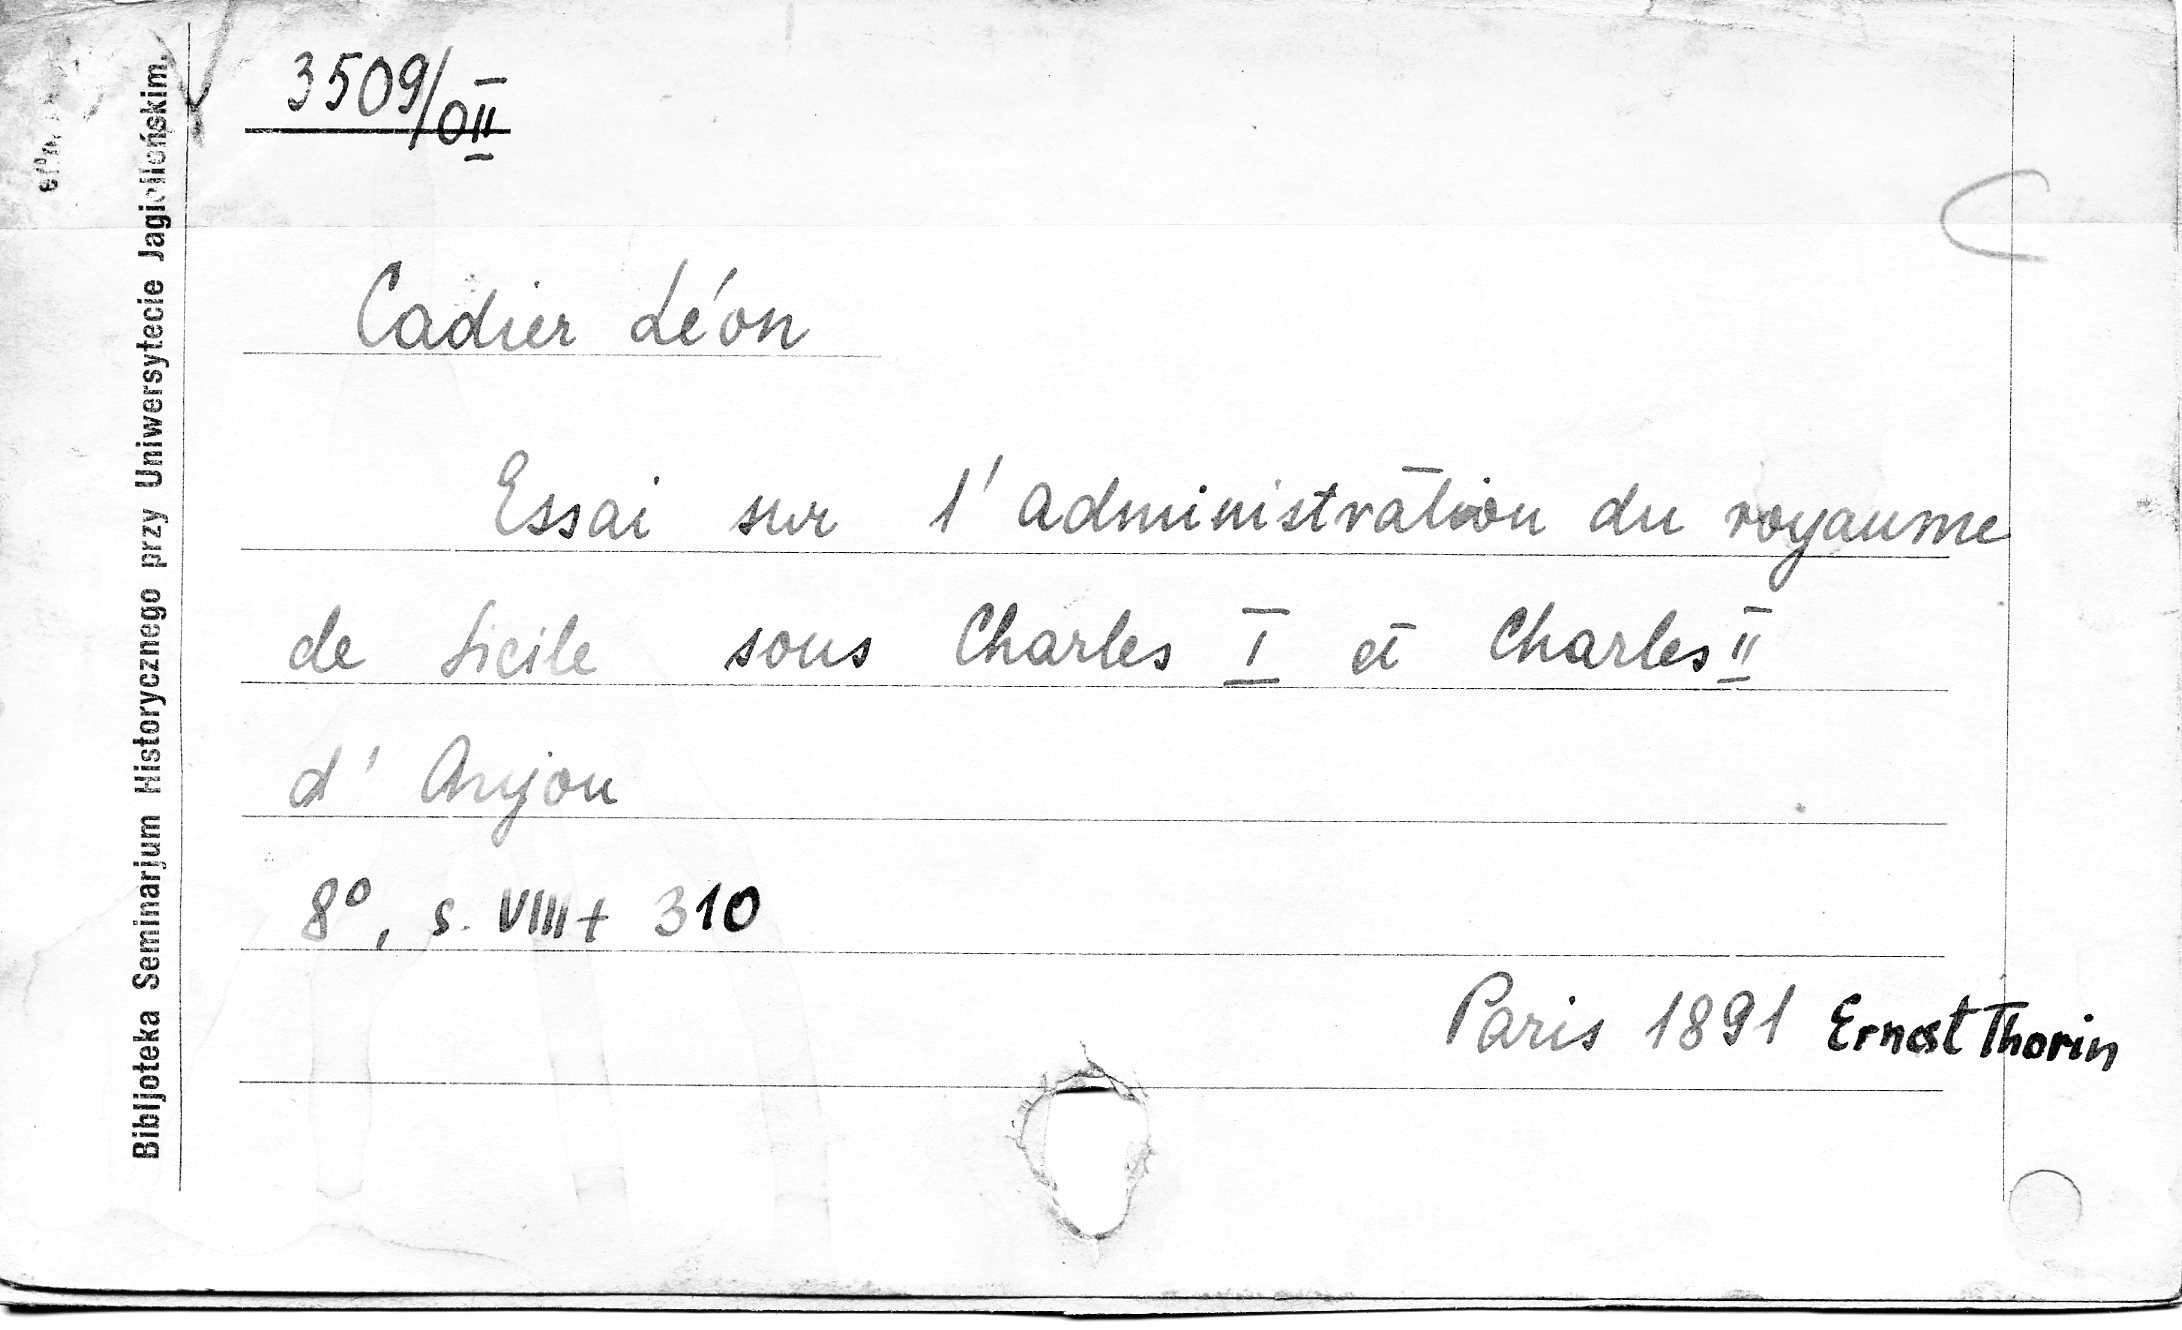 3509/OII
C
Cadier Léon
Essai sur l'administration du royaume
de Sicile sous Charles I et Charles II
d'Anjou
8°, s. VIII + 310
Paris 1891 Ernest Thorin
Bibljoteka Seminarjum Historycznego przy Uniwersytecie Jagiellońskim.